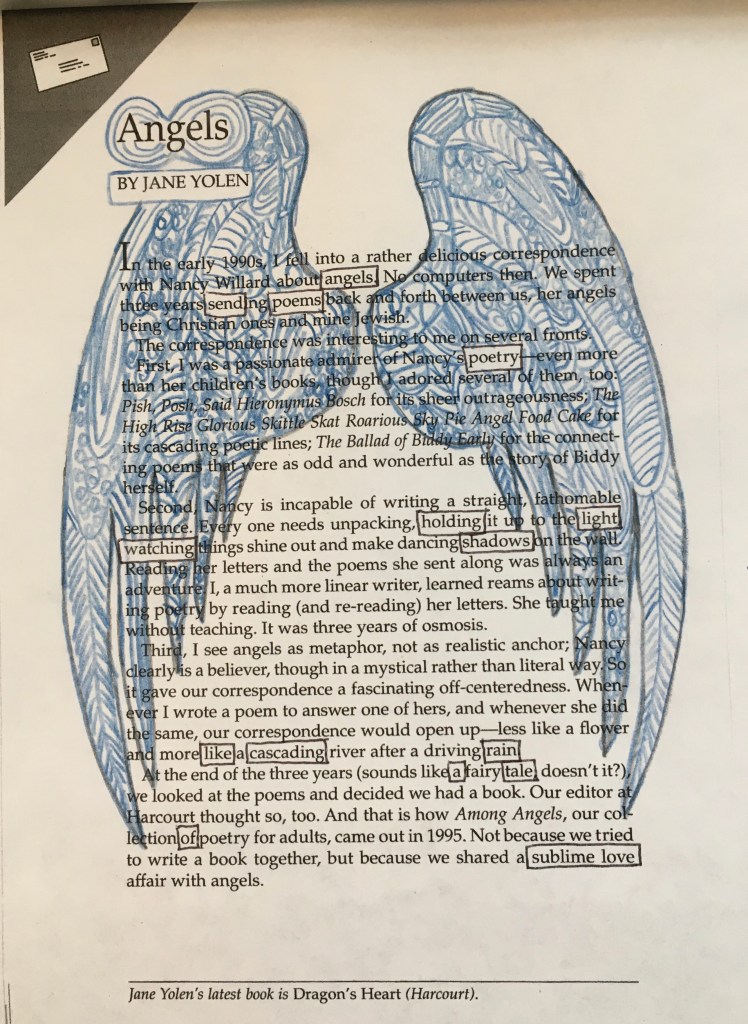 Angels
BY JANE YOLEN
In the early 1990s, I fell into a rather delicious correspondence
with Nancy Willard about angels. No computers then. We spent
three years sending poems back and forth between us, her angels
being Christian ones and mine Jewish.
The correspondence was interesting to me on several fronts.
First, I was a passionate admirer of Nancy's poetry—even more
than her children's books, though I adored several of them, too:
Pish, Posh, Said Hieronymus Bosch for its sheer outrageousness; The
High Rise Glorious Skittle Skat Roarious Sky Pie Angel Food Cake for
its cascading poetic lines; The Ballad of Biddy Early for the connect-
ing poems that were as odd and wonderful as the story of Biddy
herself.
Second, Nancy is incapable of writing a straight, fathomable
sentence. Every one needs unpacking, holding it up to the light,
watching things shine out and make dancing shadows on the wall.
Reading her letters and the poems she sent along was always an
adventure. I, a much more linear writer, learned reams about writ-
ing poetry by reading (and re-reading) her letters. She taught me
without teaching. It was three years of osmosis.
Third, I see angels as metaphor, not as realistic anchor; Nancy
clearly is a believer, though in a mystical rather than literal way. So
it gave our correspondence a fascinating off-centeredness. When-
ever I wrote a poem to answer one of hers, and whenever she did
the same, our correspondence would open up—less like a flower
and more like a cascading river after a driving rain.
At the end of the three years (sounds like a fairy tale, doesn't it?),
we looked at the poems and decided we had a book. Our editor at
Harcourt thought so, too. And that is how Among Angels, our col-
lection of poetry for adults, came out in 1995. Not because we tried
to write a book together, but because we shared a sublime love
affair with angels.
Jane Yolen's latest book is Dragon's Heart (Harcourt).